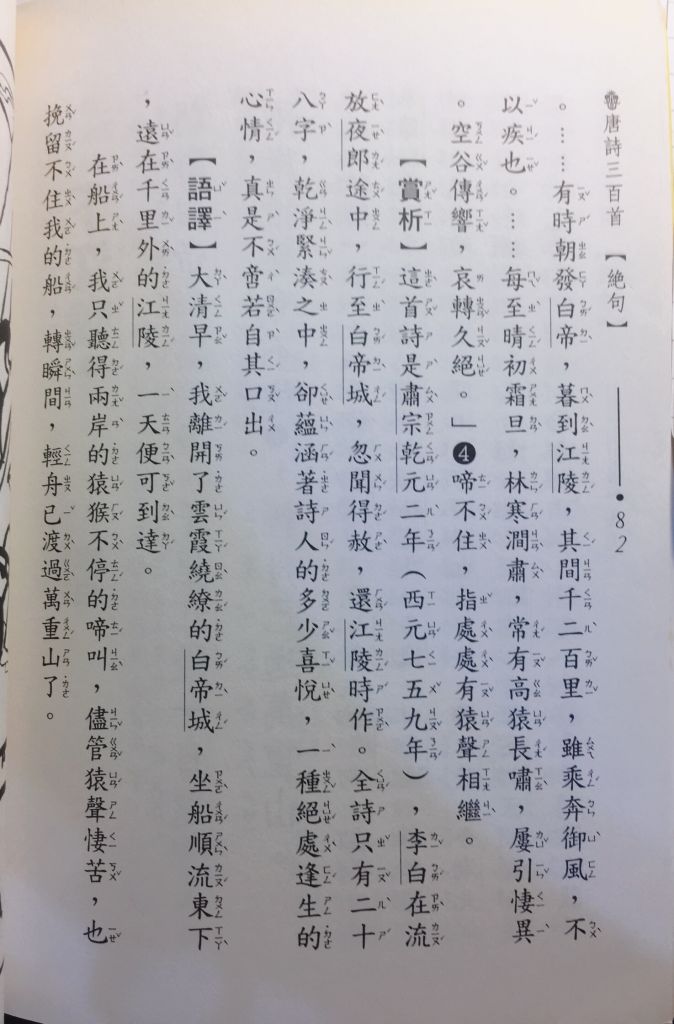 唐詩三百首【絕句】 82
。……有時朝發白帝，暮到江陵，其間千二百里，雖乘奔御風，不
以疾也。……每至晴初霜旦，林寒澗肅，常有高猿長嘯，屢引悽異
。空谷傳響，哀轉久絕。」❹啼不住，指處處有猿聲相繼。
【賞析】這首詩是肅宗乾元二年（西元七五九年），李白在流
放夜郎途中，行至白帝城，忽聞得赦，還江陵時作。全詩只有二十
八字，乾淨緊湊之中，卻蘊涵著詩人的多少喜悅，一種絕處逢生的
心情，真是不啻若自其口出。
【語譯】大清早，我離開了雲霞繞繚的白帝城，坐船順流東下
，遠在千里外的江陵，一天便可到達。
在船上，我只聽得兩岸的猿猴不停的啼叫，儘管猿聲悽苦，也
挽留不住我的船，轉瞬間，輕舟已渡過萬重山了。